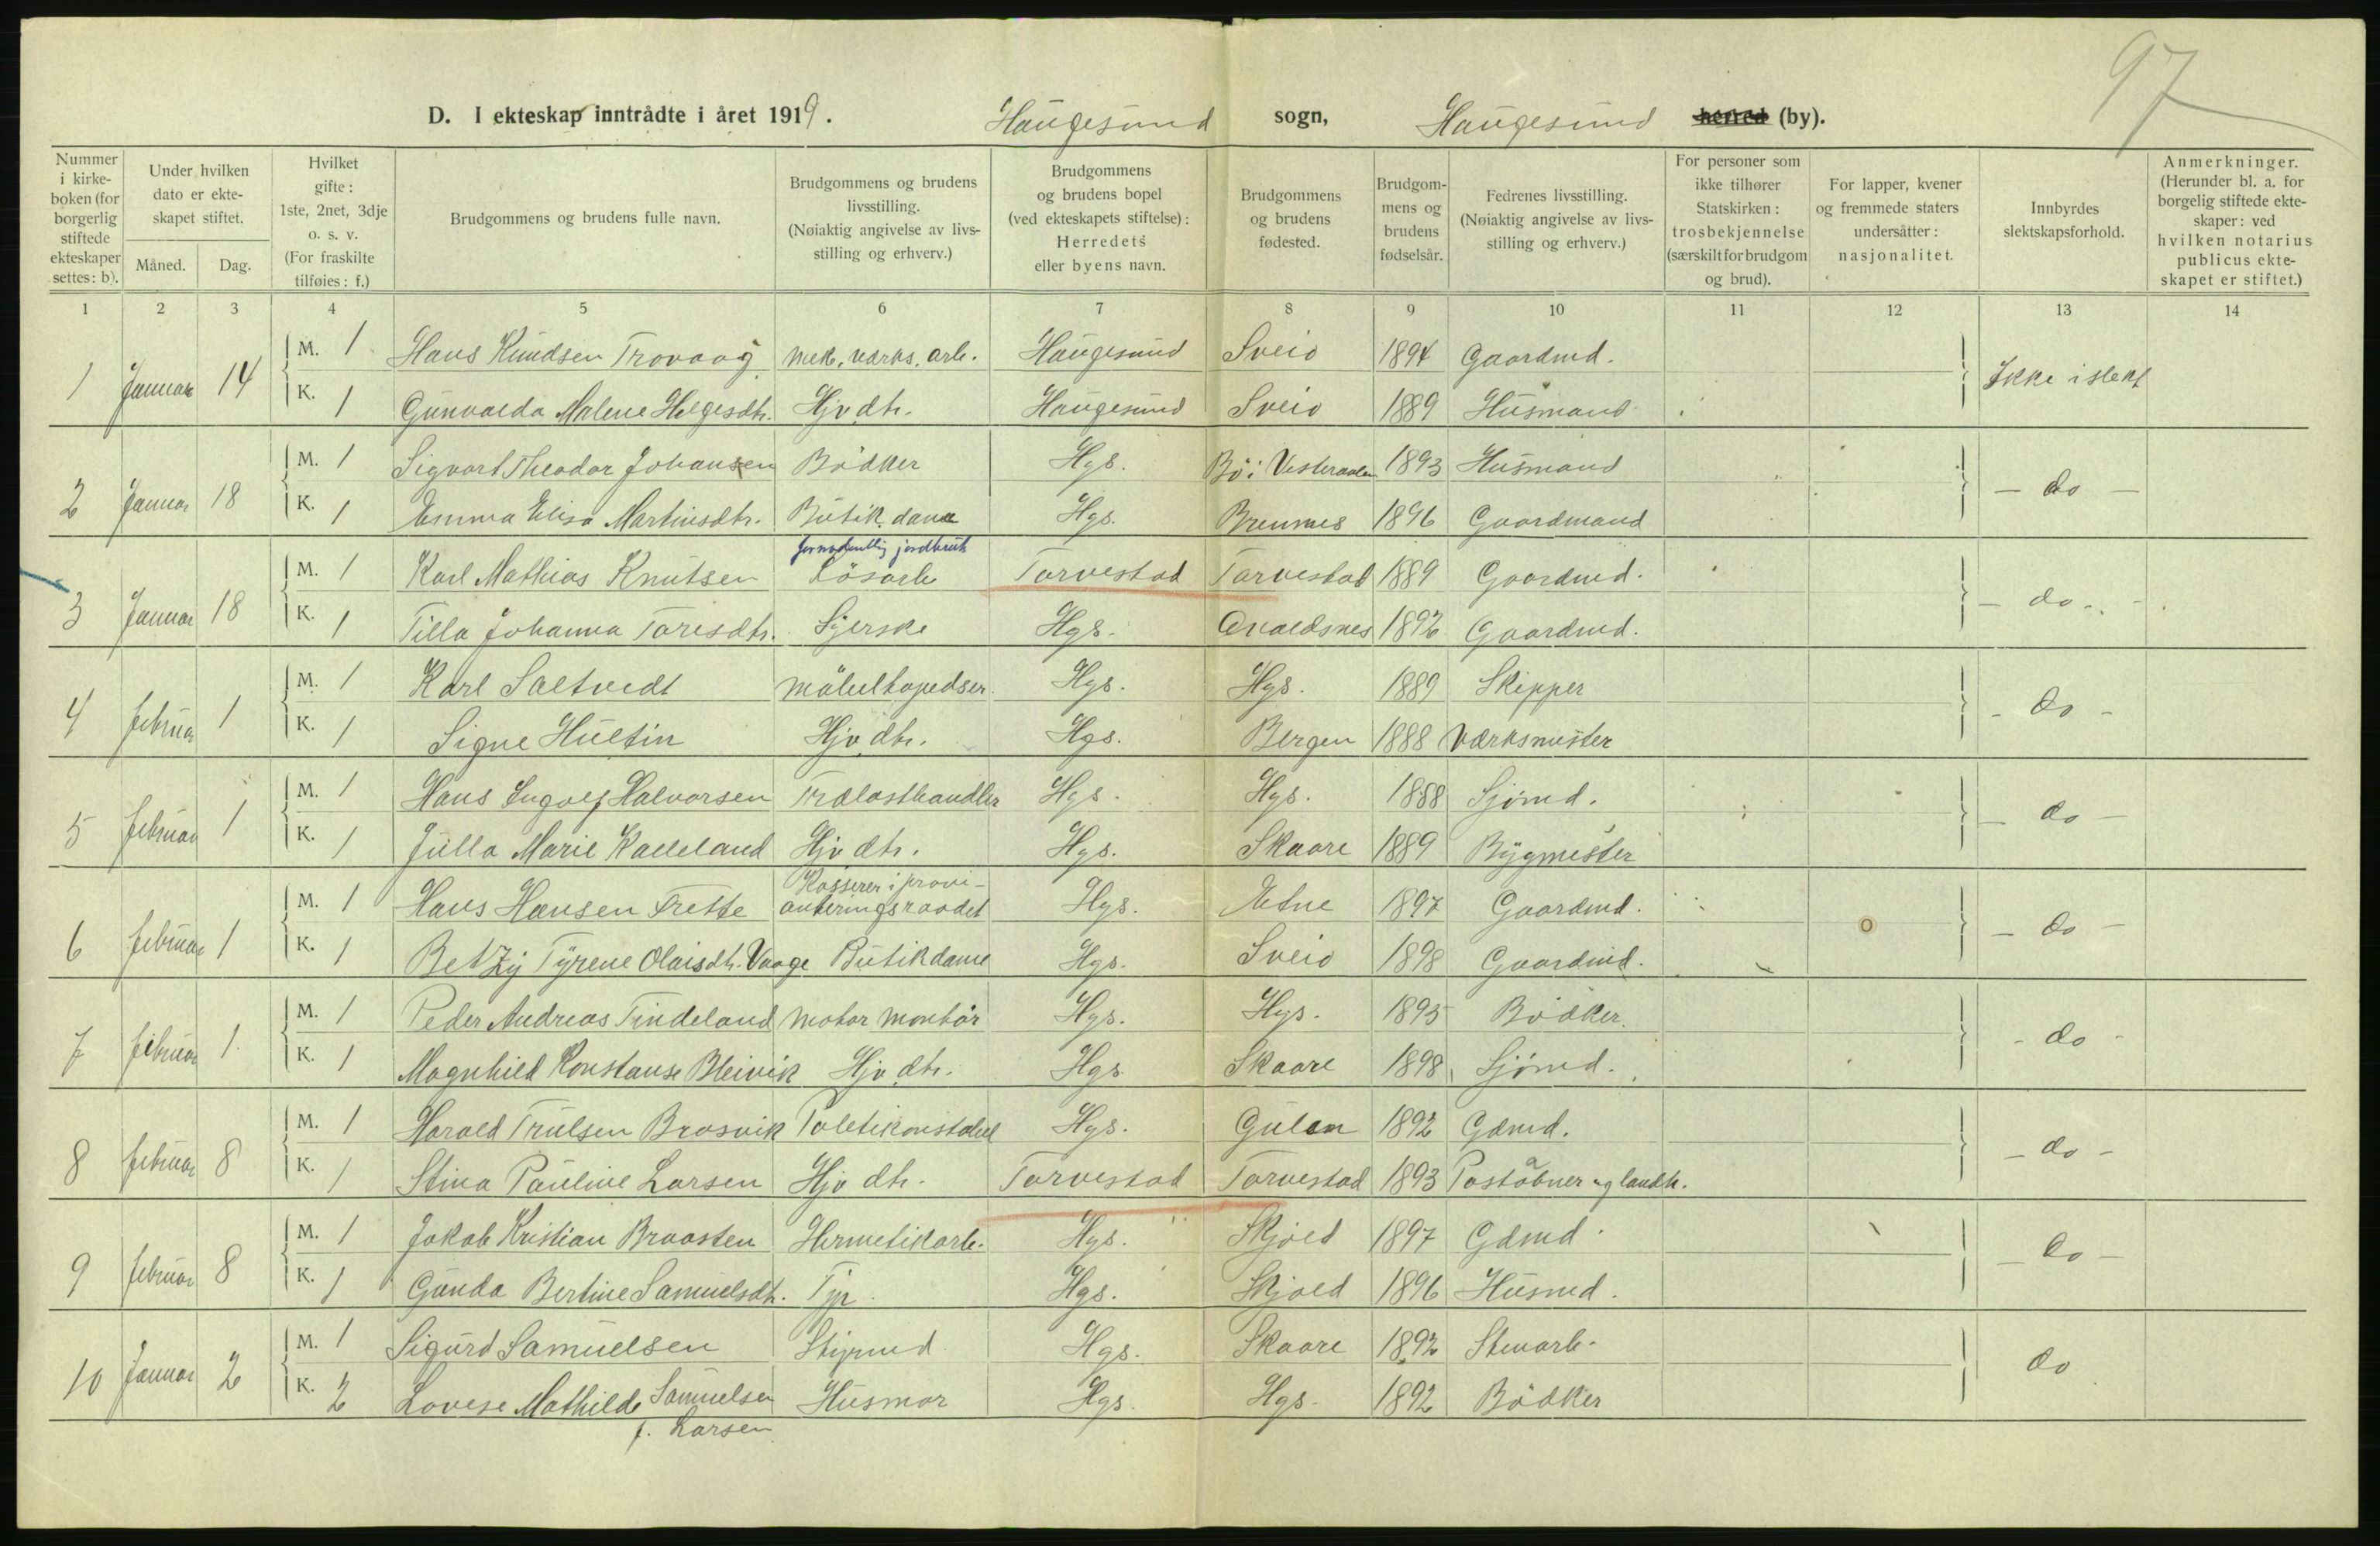 97
D. I ekteskap inntrådte i året 1919. Haugesund sogn, Haugesund herred (by).
Nummer i kirkeboken (for borgerlig stiftede ekteskaper settes: b). | Under hvilken dato er ekteskapet stiftet. Måned. Dag. | Hvilket gifte: 1ste, 2net, 3dje o. s. v. (For fraskilte tilføies: f.) | Brudgommens og brudens fulle navn. | Brudgommens og brudens livsstilling. (Nøiaktig angivelse av livsstilling og erhverv.) | Brudgommens og brudens bopel (ved ekteskapets stiftelse): Herredets eller byens navn. | Brudgommens og brudens fødested. | Brudgommens og brudens fødselsår. | Fedrenes livsstilling. (Nøiaktig angivelse av livsstilling og erhverv.) | For personer som ikke tilhører Statskirken: trosbekjennelse (særskilt for brudgom og brud). | For lapper, kvener og fremmede staters undersåtter: nasjonalitet. | Innbyrdes slektskapsforhold. | Anmerkninger. (Herunder bl. a. for borgerlig stiftede ekteskaper: ved hvilken notarius publicus ekteskapet er stiftet.)
1 2 3 4 5 6 7 8 9 10 11 12 13 14
1 Januar 14 M. 1 Hans Knudsen Trovaag mek. værks. arb. Haugesund Sveio 1894 Gaardmd. Ikke i slekt
K. 1 Gunvalda Malene Helgesdtr. Hjv. dtr. Haugesund Sveio 1889 Husmand
2 Januar 18 M. 1 Sigvart Theodor Johansen Bödker Hgs. Bö i Vesteraalen 1893 Husmand - do -
K. 1 Emma Elisa Martinsdtr. Butik. dame Hgs. Bremnes 1896 Gaardmand
fornødentlig jordbruk
3 Januar 18 M. 1 Karl Mathias Knutsen Lösarb Torvestad Torvestad 1889 Gaardmd. - do -
K. 1 Tilla Johanna Toresdtr. Syerske Hgs. Avaldsnes 1892 Gaardmd.
4 februar 1 M. 1 Karl Saltvedt möbeltapedser. Hgs. Hgs. 1889 Skipper - do -
K. 1 Signe Hultin Hjv. dtr. Hgs. Bergen 1888 Værksmester
5 februar 1 M. 1 Hans Ingolf Halvorsen Trælasthandler Hgs. Hgs. 1888 Sjömd. - do -
K. 1 Julla Marie Kalleland Hjv dtr. Hgs. Skaare 1889 Bygmester
Kasserer i provi-
6 februar 1 M. 1 Hans Hansen Frette anteringsraadet Hgs. Etne 1897 Gaardmd. - do -
K. 1 Betzy Tyrene Olaisdtr. Vaage Butikdame Hgs. Sveio 1898 Gaardmd.
7 februar 1 M. 1 Peder Andreas Tindeland motor montör Hgs. Hgs. 1895 Bödker. - do -
K. 1 Magnhild Konstanse Bleivik Hjv. dtr. Hgs. Skaare 1898 Sjömd.
8 februar 8 M. 1 Harald Trulsen Brosvik Poletikonstabel Hgs. Gulen 1892 Gdmd. - do -
K. 1 Stina Pauline Larsen Hjv dtr. Torvestad Torvestad 1893 Poståbner og landh.
9 februar 8 M. 1 Jakob Kristian Braasten Hermetikarb. Hgs. Skjold 1897 Gdmd. - do -
K. 1 Gunda Bertine Samuelsdtr. Tjp. Hgs. Skjold 1896 Husmd.
10 Januar 2 M. 1 Sigurd Samuelsen Styrmd Hgs. Skaare 1892 Stenarb. do
K. 2 Lovise Mathilde Samuelsen Husmor Hgs. Hgs. 1892 Bödker
f. Larsen